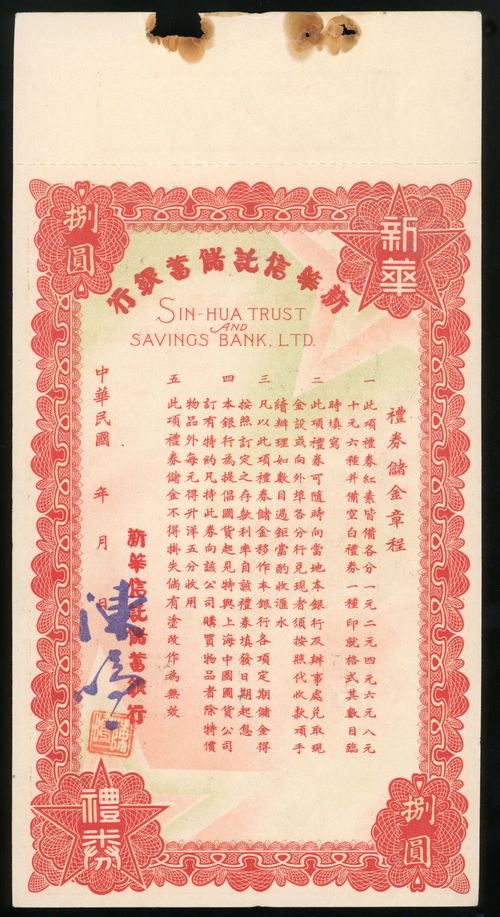 捌圓
新華
新華信託儲蓄銀行
SIN-HUA TRUST
AND
SAVINGS BANK, LTD.
禮券儲金章程
一 此項禮券紅素皆備各分一元二元四元六元八元
十元六種并備空白禮券一種印就格式其數目臨
時填寫
二 此項禮券可隨時向當地本銀行及辦事處兌取現
金設或向外埠各分行兌現者須按照代收款項手
續辦理如數目過鉅當酌收滙水
三 凡以此項禮券儲金移作本銀行各項定期儲金得
按照訂定之存款利率自該禮券填發日期起息
四 本銀行為提倡國貨起見特與上海中國國貨公司
訂有特約凡持此券向該公司購買物品者除特價
物品外每元得升洋五分收用
五 此項禮券儲金不得掛失倘有塗改作為無效
中華民國 年 月 日
新華信託儲蓄銀行
禮券
捌圓